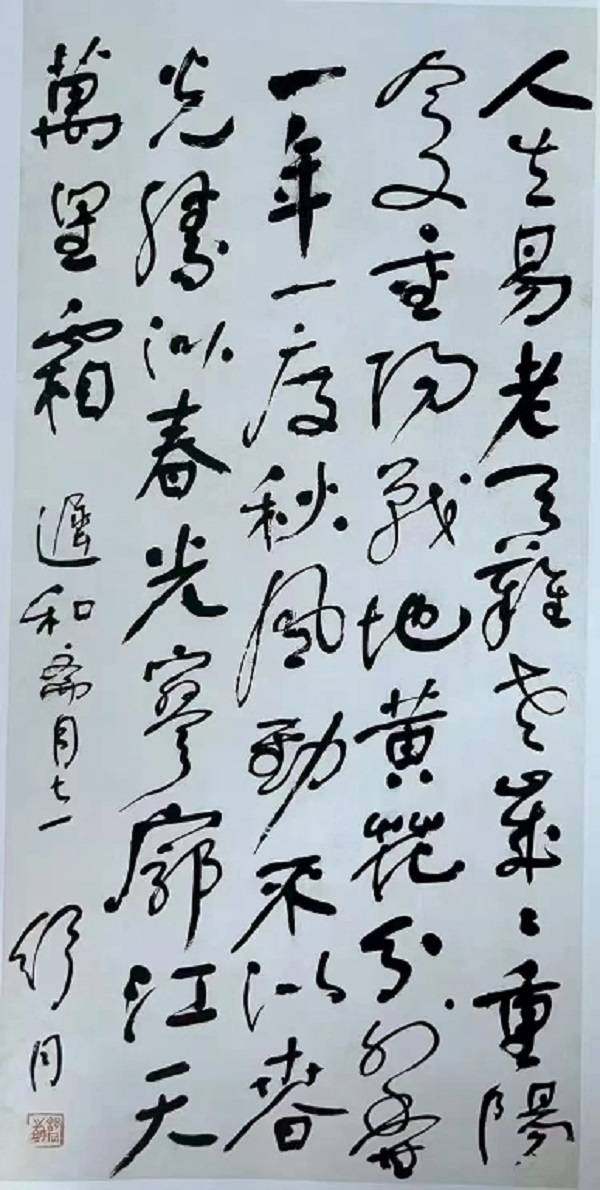 人生易老天難老歲〻重陽
今又重陽戰地黄花分外香
一年一度秋風勁不似春
光勝似春光寥廓江天
萬里霜 和 舒同